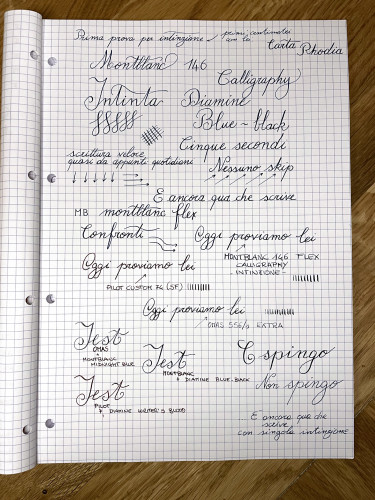 Prima prova per intinzione / primi centimetri
con la Carta Rhodia
Montblanc 146
Calligraphy
Intinta Diamine
Blue ~ black
Cinque secondi
scrittura veloce
quasi da appunti quotidiani
Nessuno skip
E ancora qua che scrive
MB montblanc flex
Confronti
Oggi proviamo lei
MONTBLANC 146 FLEX
CALLIGRAPHY
INTINZIONE -
Oggi proviamo lei
PILOT CUSTOM FA (SF)
Oggi proviamo lei
OMAS 556/S EXTRA
Test
OMAS
+
MONTBLANC
MIDNIGHT BLUE
Test
MONTBLANC
+ DIAMINE BLUE-BLACK
E spingo
Non spingo
Test
PILOT
+ DIAMINE WRITER'S BLOOD
E ancora qua che
scrive
con singola intinzione